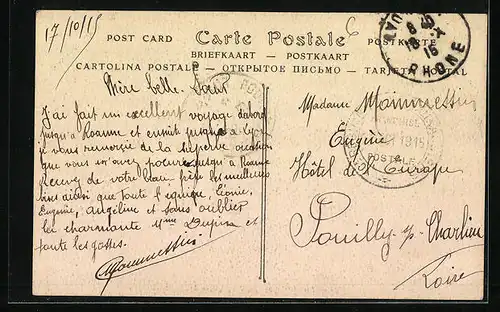 17/10/15
POST CARD Carte Postale POSTKARTE
BRIEFKAART — POSTKAART
CARTOLINA POSTALE — ОТКРЫТОЕ ПИСЬМО — TARJETA POSTAL
LYON
8 40
18 - X
15
RHONE
belle Sœur
J'ai fait un excellent voyage d'abord
jusqu'a Roanne et ensuite jusqu'a
je vous remercie de la superbe occasion
que vous m'avez jusqu'a Roanne
Recevez de votre beau frère les meilleurs
ainsi que toute l'équipe, Léonie,
Eugénie, Angeline et sans oublier
la charmante Mme Dupin et
toute les gosses.
Mommessin
Madame Mommessin
Eugène
Hôtel de l'Europe
Pouilly s. Charlieu
Loire
1915
POSTALE